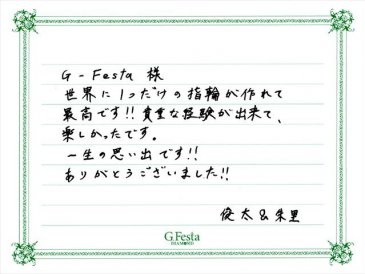 G-Festa 様
世界に1つだけの指輪が作れて
最高です!!貴重な経験が出来て、
楽しかったです。
一生の思い出です!!
ありがとうございました!!
俊太&朱里
G.Festa
DIAMOND